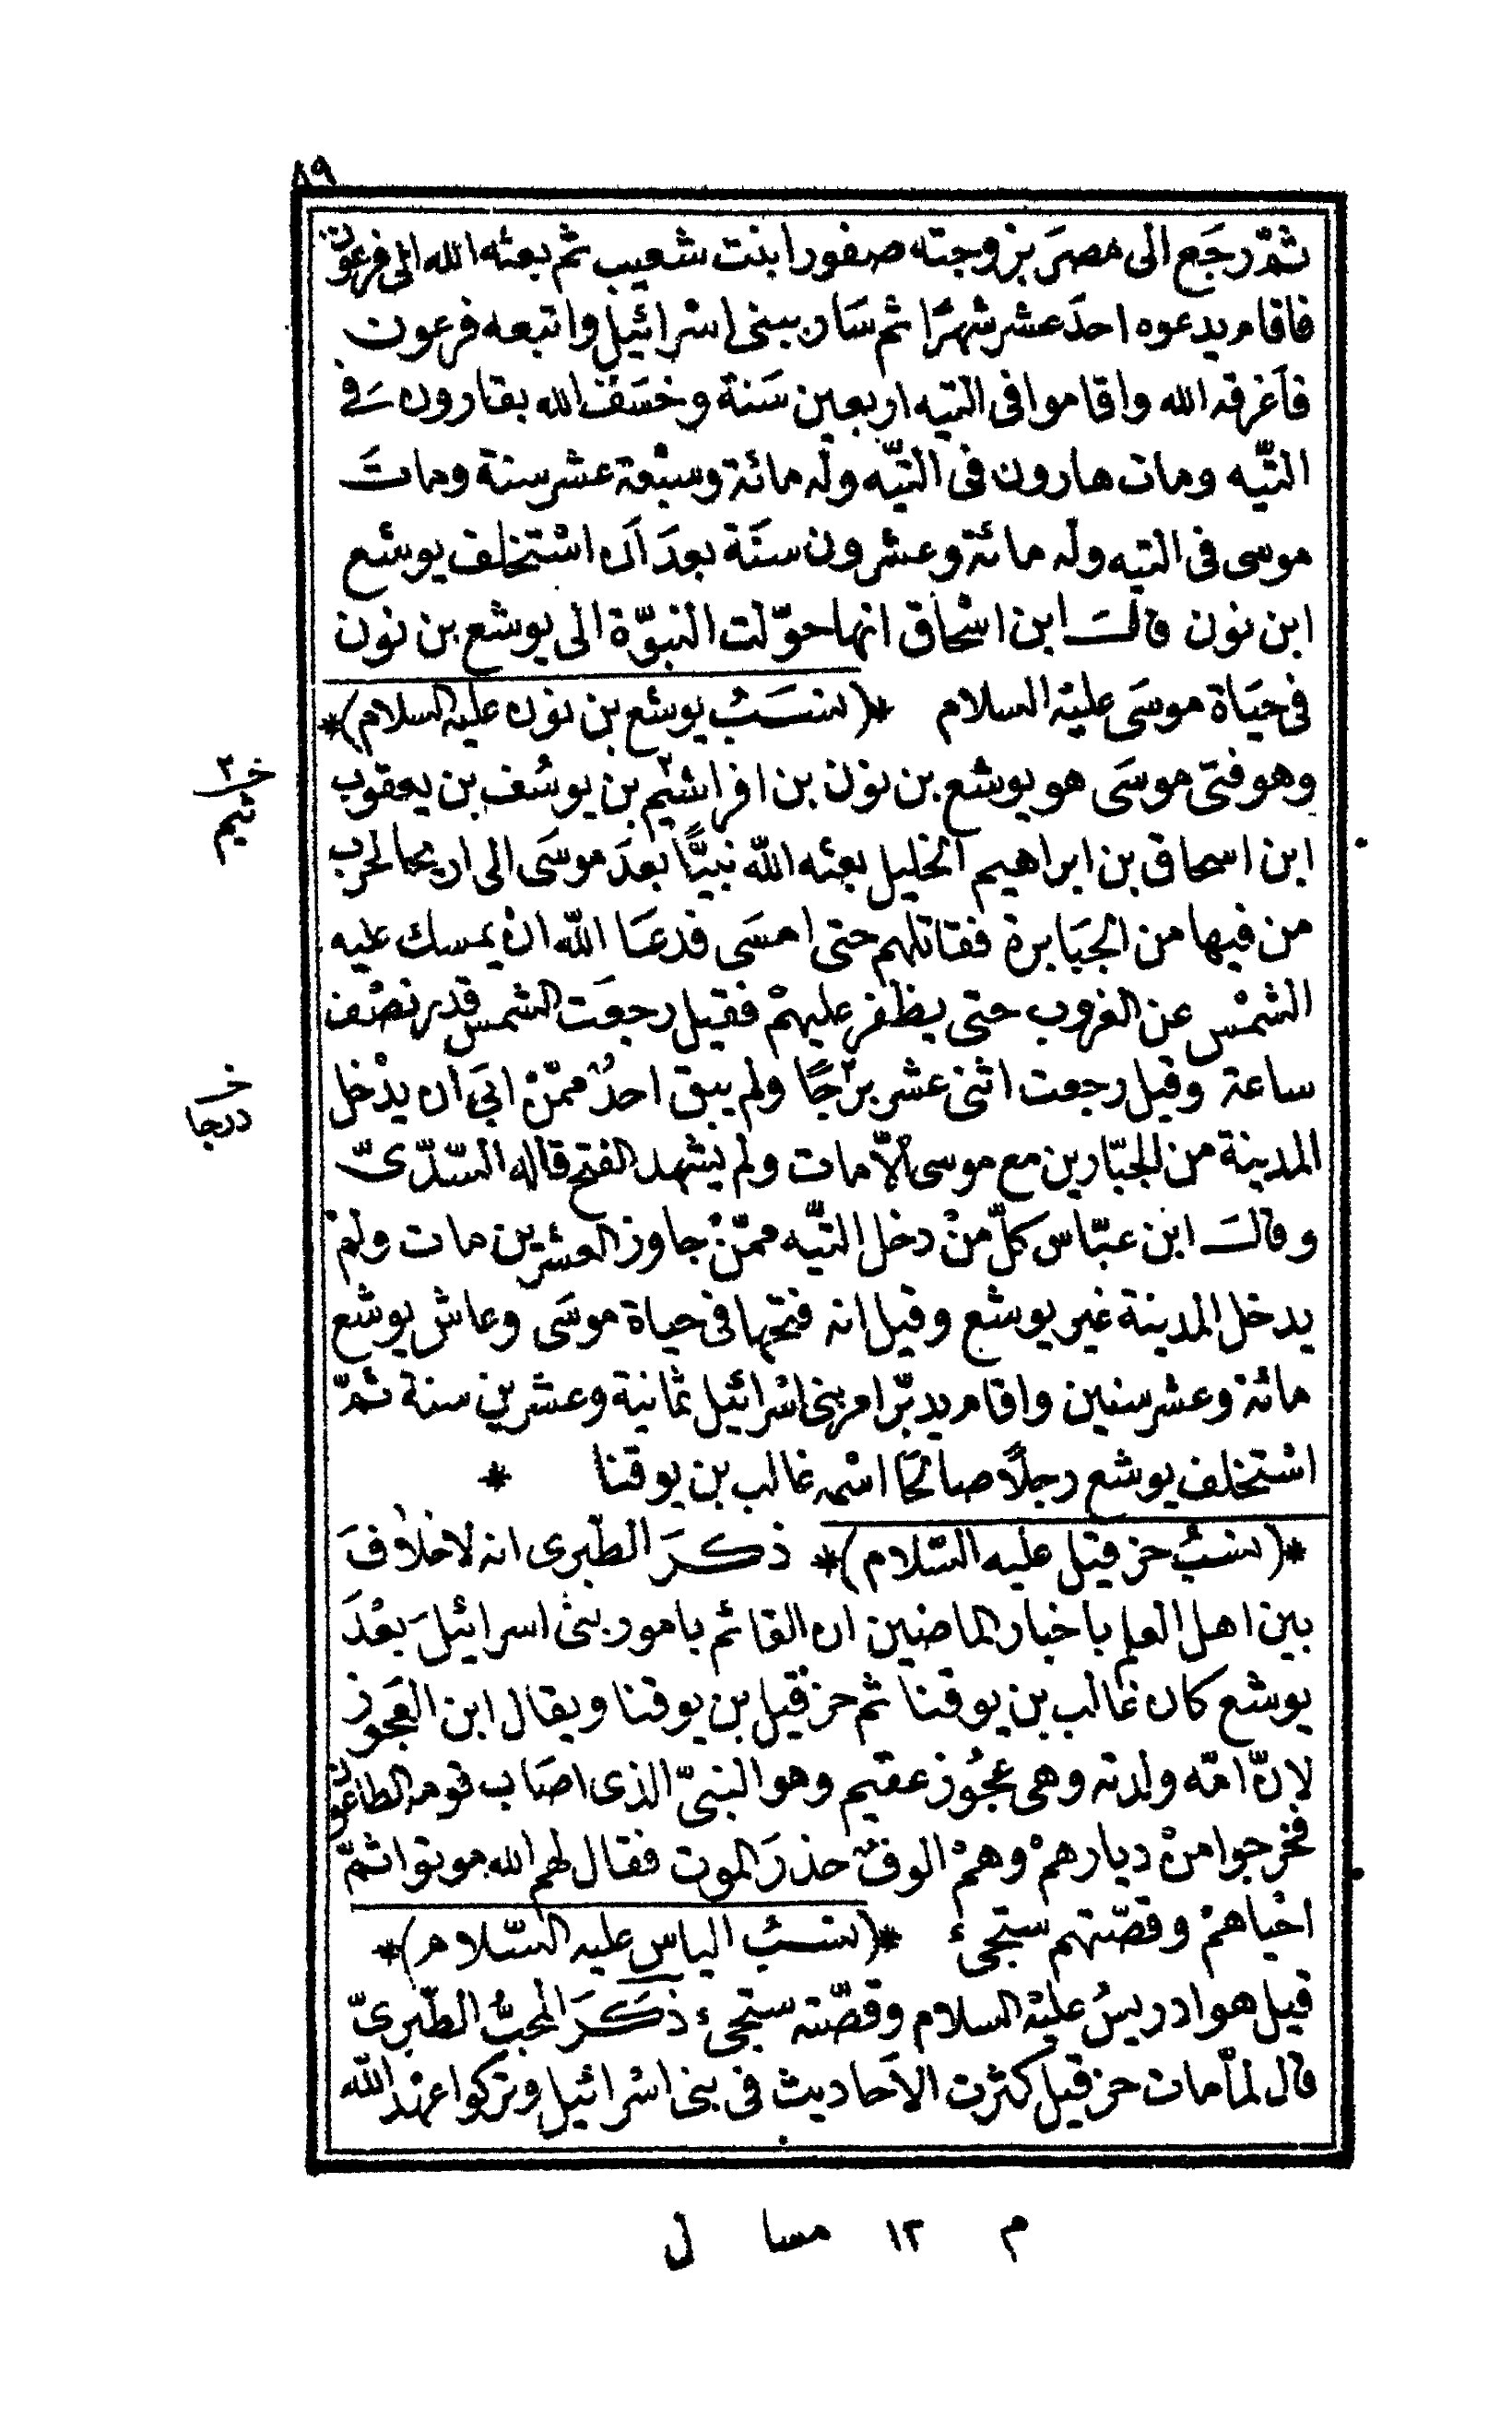 ٨٩
ثمّ رجَع الى مصرَ بزوجته صفورا بنت شعيب ثم بعثه الله الى فرعون
فاقام يدعوه احدَ عشر شهرًا ثم سَار ببنى اسْرائيل واتبعه فرعون
فأغرقه الله واقاموا فى التيه اربعين سَنة وخسَف الله بقارون فى
التيّه ومات هارون فى التيّه وله مائة وسبْعة عشر سنة وماتَ
موسى فى التيه وله مائة وعشرون سنَة بعدَ اَن اسْتخلف يوشع
ابن نون قالَ ابن اسْحاق انها حوّلت النبوّة الى يوشع بن نون
فى حيَاة موسَى عليْه السلام *(نسَبُ يوشع بن نون عليه السلام)*
وهو فتى موسَى هو يوشع بن نون بن افراشيم٢ بن يوسُف بن يعقوب
خـ ٢
ثيم
ابن اسحاق بن ابراهيم الخليل بعثه الله نبيًّا بعدَ موسَى الى اريحا لحرب
من فيها من الجبَابرة فقاتلهم حتى امسَى فدعَا الله ان يمسك عليه
الشمْس عن الغروب حتى يظفر عليهمْ فقيل رجعَت الشمس قدر نصْف
ساعة وقيل رجعت اثنى عشر برْجًا٢ ولم يبق احدٌ ممّنْ ابَى ان يدْخل
خـ
درجا
المدينة من الجبّارين مع موسى الاّ مات ولم يشهد الفتح قاله السّدّىّ
وقالَ ابن عبّاس كلّ منْ دخل التيّه ممّنْ جاوز العشرين مات ولم
يدخل المدينة غير يوشع وقيل انه فتحها فى حياة موسَى وعاش يوشع
مائة وعشر سنين واقام يدبّر امر بنى اسْرائيل ثمانية وعشرين سنة ثمّ
اسْتخلف يوشع رجلًا صالحًا اسْمه غالب بن يوقنا *
*(نسَبُ حزقيل عليه السّلام)* ذكرَ الطّبرى انه لا خلافَ
بين اهل العلم باخبار الماضين ان القائم بامور بنى اسرائيلَ بعْدَ
يوشع كان غالب بن يوقنا ثم حزقيل بن يوقنا ويقال ابن العَجوز
لانّ امّه ولدته وهى عجُوز عقيم وهو النبىّ الذى اصَاب قومه الطاعون
فخرجوا منْ ديارهمْ وهمْ الوفٌ حذرَ الموت فقال لهم الله موتوا ثمّ
احْياهمْ وقصّتهم ستجىء *(نسَبُ الياس عليه السّلام)*
قيل هو ادريسُ عليْه السلام وقصّته ستجىء ذكَرَ المحبُّ الطّبرىّ
قال لمّا مات حزقيل كثرت الاَحاديث فى بنى اسْرائيل وتركوا عهْد الله
م ١٢ مسا ل